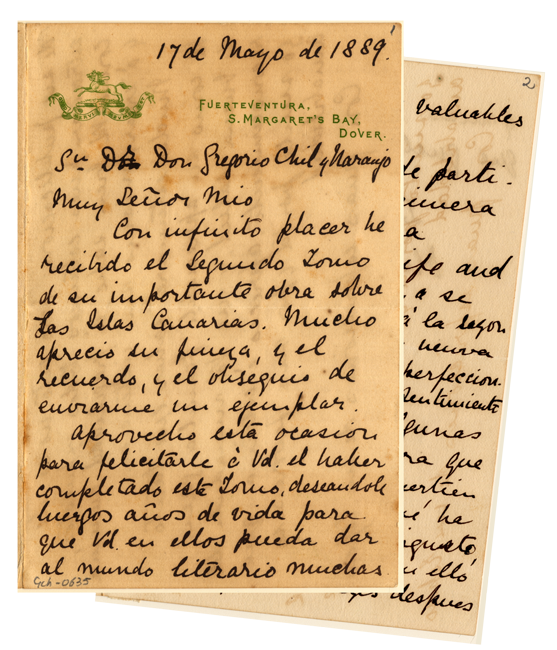 17 de Mayo de 1889.
FUERTEVENTURA,
S. MARGARET'S BAY,
DOVER.
Don Gregorio Chil y Naranjo
Muy Señor Mio
Con infinito placer he
recibido el Segundo Tomo
de su importante obra sobre
Las Islas Canarias. Mucho
aprecio su fineza, y el
recuerdo, y el obsequio de
enviarme un ejemplar.
Aprovecho esta ocasion
para felicitarle á Vd. el haber
completado este Tomo, deseandole
luengos años de vida para
que Vd. en ellos pueda dar
al mundo literario muchas
Gch-0635
2
valuables
de parti-
a
ife and
, a se
á la sazon
nueva
perfeccion
sentimiento
gunas
ra que
é ha
n ello
despues